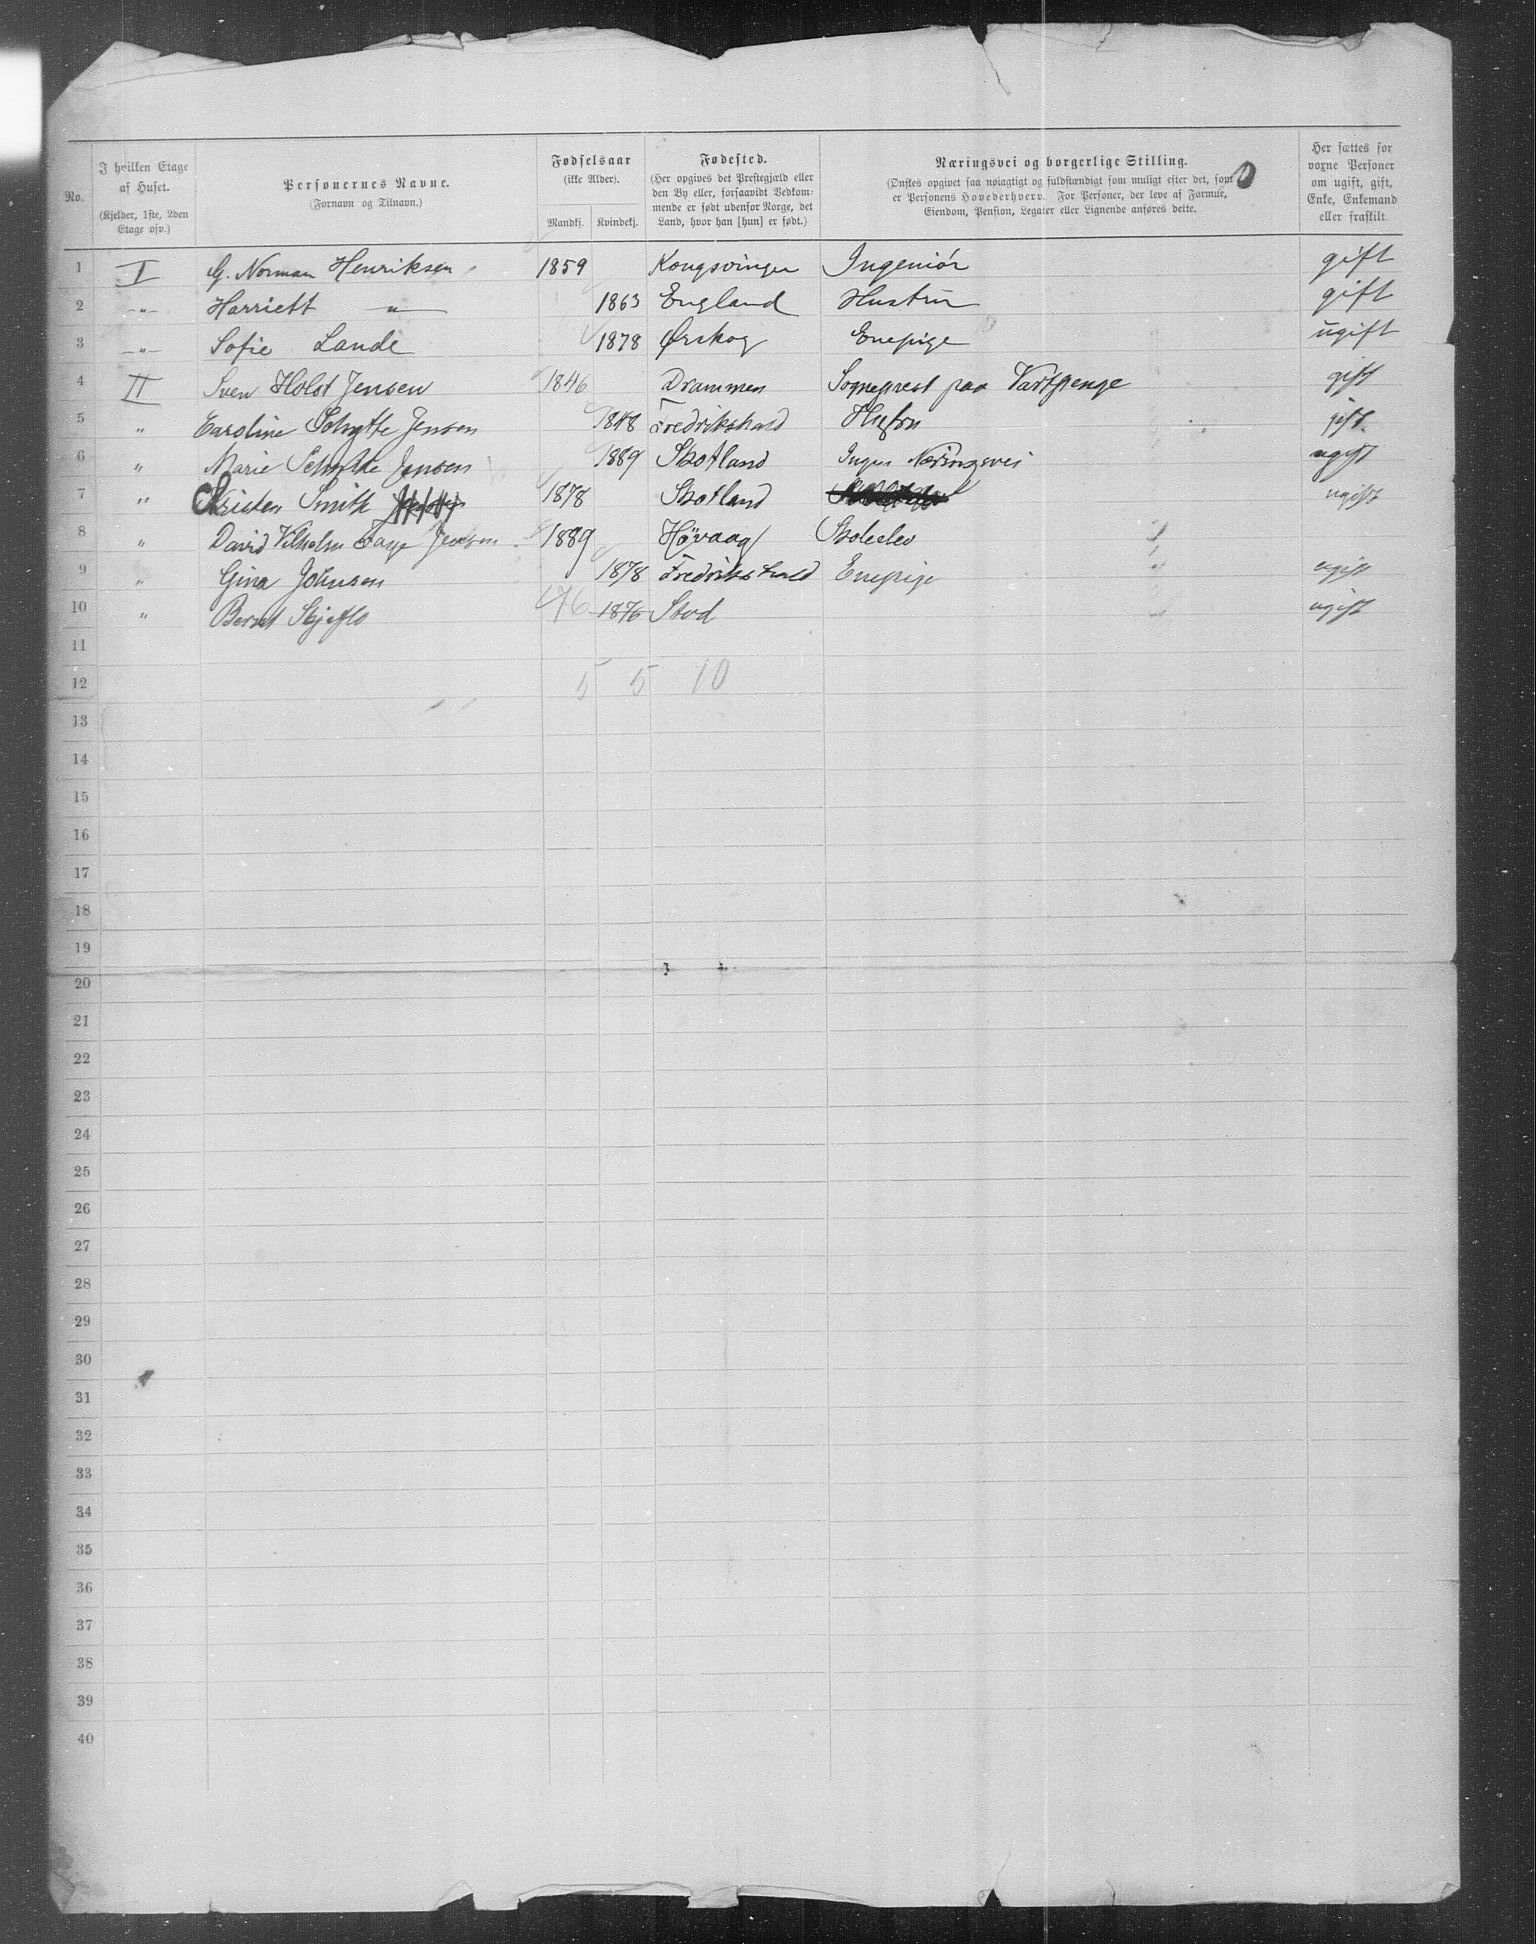 No.
I hvilken Etage af Huset. (Kjelder, 1ste, 2den Etage osv.)
Personernes Navne. (Fornavn og Tilnavn.)
Fødselsaar (ikke Alder). Mandkj. Kvindekj.
Fødested. (Her opgives det Prestegjæld eller den By eller, forsaavidt Vedkommende er født udenfor Norge, det Land, hvor han [hun] er født.)
Næringsvei og borgerlige Stilling. (Ønskes opgivet saa nøiagtigt og fuldstændigt som muligt efter det, som er Personens Hovederhverv. For Personer, der leve af Formue, Eiendom, Pension, Legater eller Lignende anføres dette.
Her sættes for voxne Personer om ugift, gift, Enke, Enkemand eller fraskilt.
1 I G. Norman Henriksen 1859 Kongsvinger Ingeniör gift
2 -"- Harriett -"- 1863 England Hustru gift
3 -"- Sofie Lande 1878 Ørskog Enepige ugift
4 II Sven Holst Jensen 1846 Drammen Sogneprest paa Vartpenge gift
5 " Caroline Schytte Jensen 1848 Fredrikshald Husfru gift
6 " Marie Schytte Jensen 1889 Skotland Ingen Næringsvei ugift
7 " Kristen Smith 1878 Skotland ugift
8 " David Vilhelm Faye Jensen 1889 Hövaag Skoleelev
9 " Gina Johnsen 1878 Fredrikshald Enepige ugift
10 " Bernt Skjeflo 76 1876 Stod ugift
11
12 5 5 10
13
14
15
16
17
18
19
20
21
22
23
24
25
26
27
28
29
30
31
32
33
34
35
36
37
38
39
40